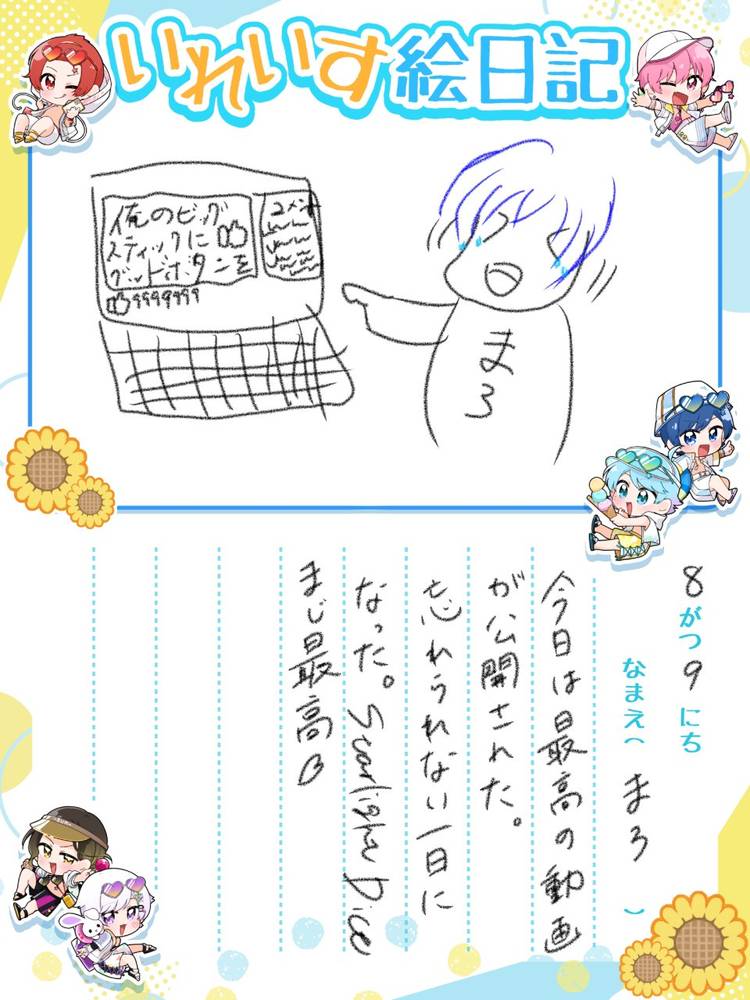 いれいす絵日記
俺のビッグ
スティックに
グッドボタンを
コメント
9999999
まろ
8がつ9にち
なまえ( まろ )
今日は最高の動画
が公開された。
忘れうれない一日に
なった。Starlight Dice
まじ最高